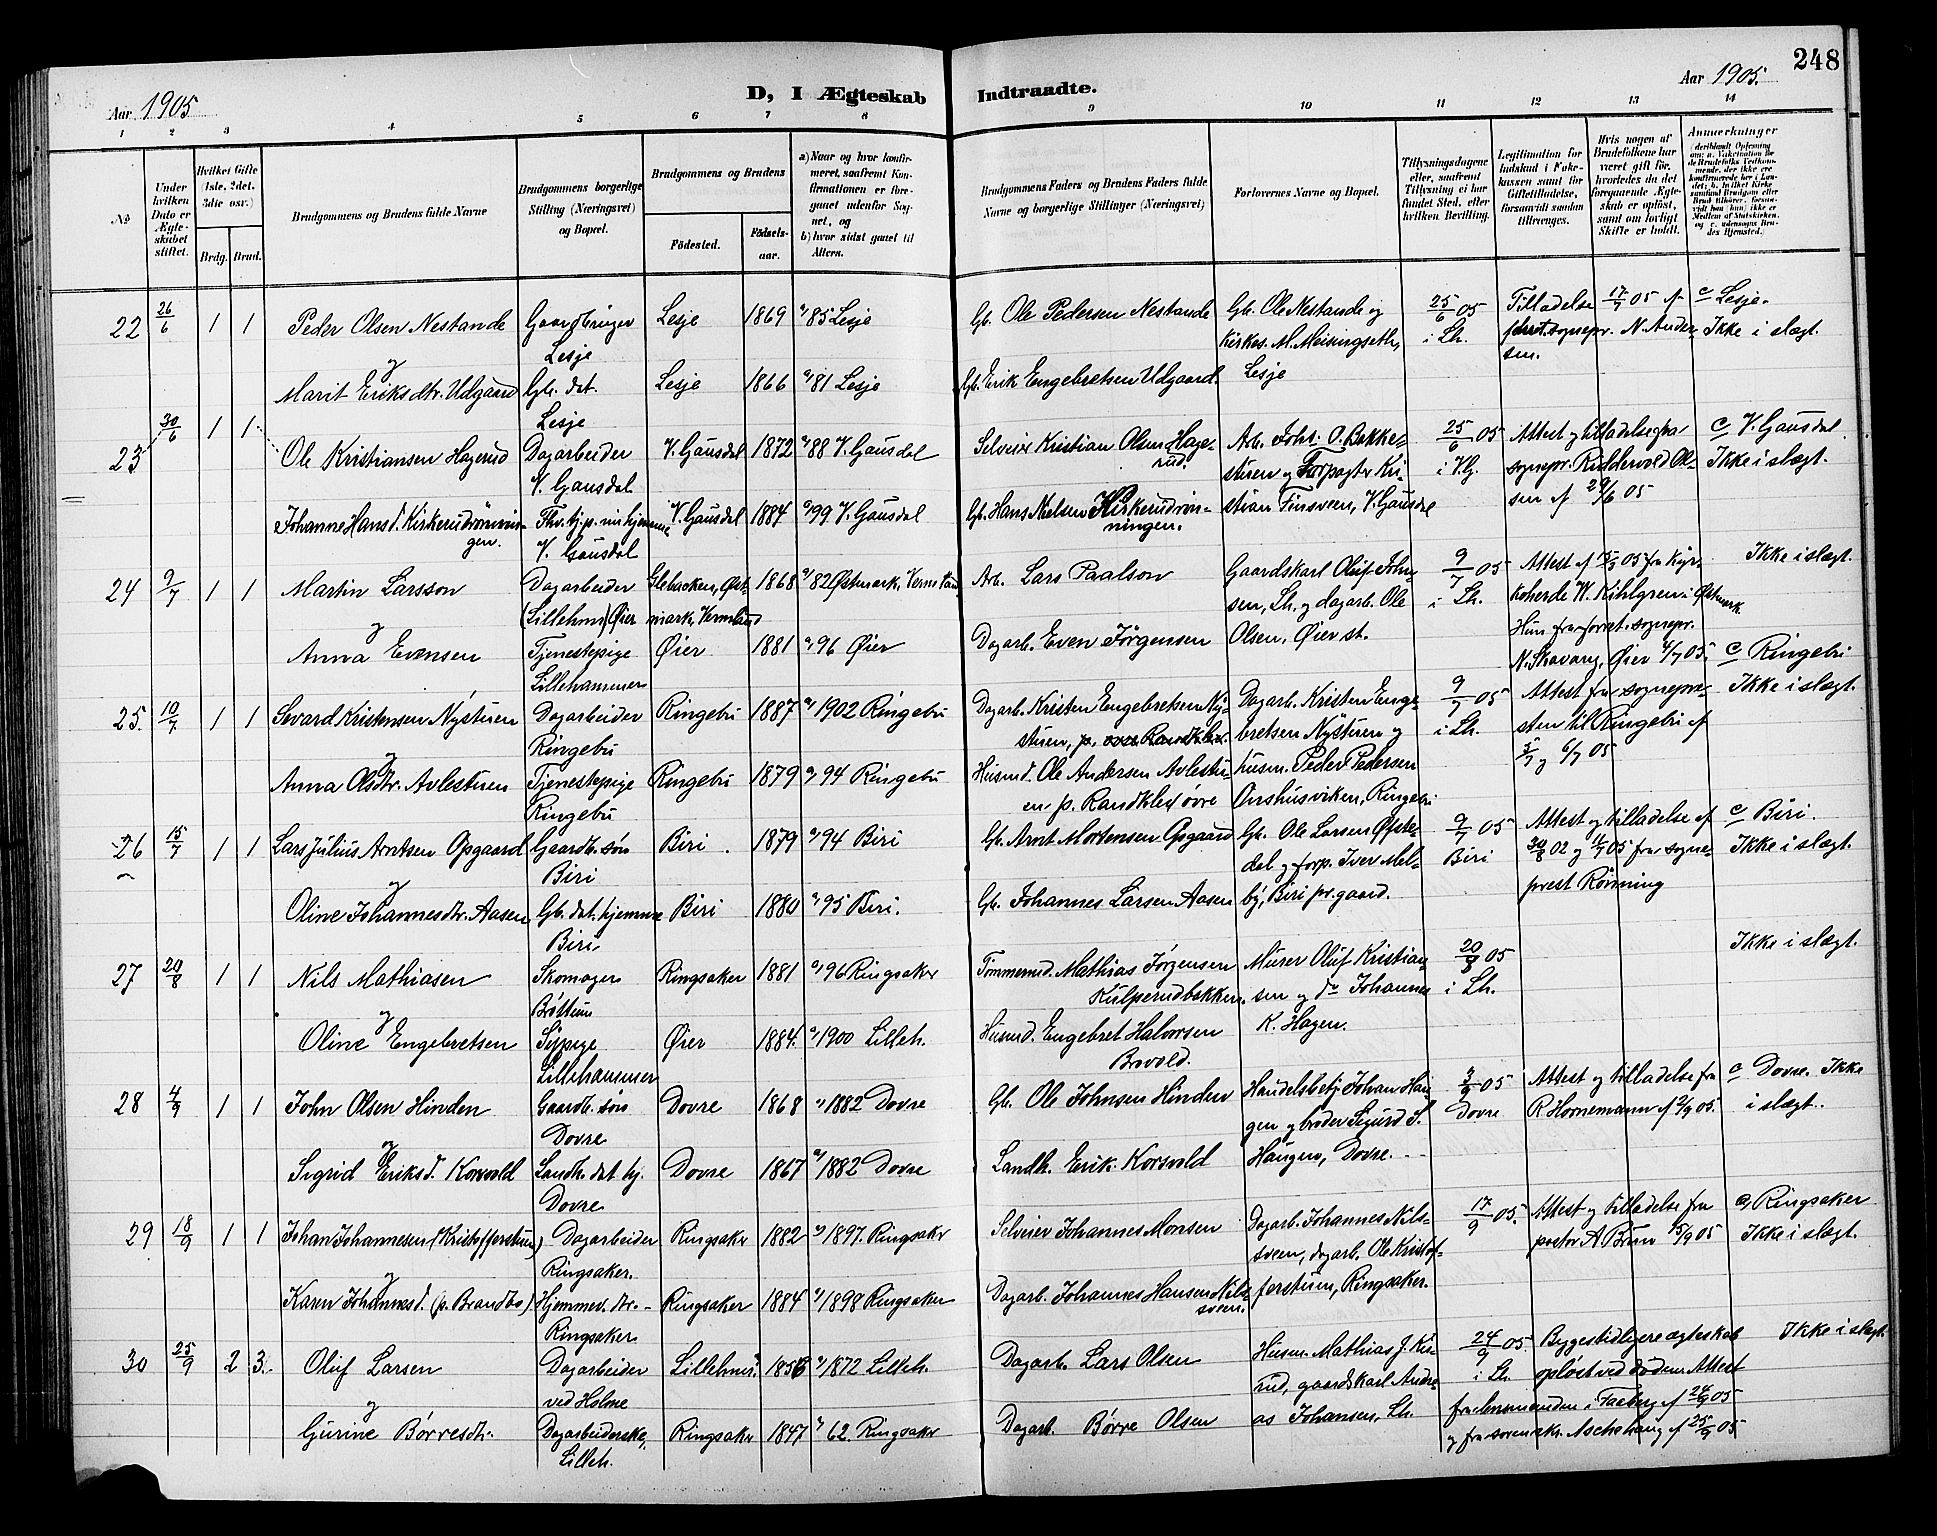 248
Aar 1905
D, I Ægteskab Indtraadte.
Aar 1905.
1 2 3 4 5 6 7 8 9 10 11 12 13 14
No
Under hvilken Dato er Ægteskabet stiftet.
Hvilket Gifte (1ste, 2det, 3die osv.)
Brdg. Brud.
Brudgommens og Brudens fulde Navne
Brudgommens borgerlige Stilling (Næringsvei) og Bopæl.
Brudgommens og Brudens
Födested. Födselsaar.
a) Naar og hvor konfirmeret, saafremt Konfirmationen er foregaaet udenfor Sognet, og
b) hvor sidst gaaet til Alters.
Brudgommens Faders og Brudens Faders fulde Navne og borgerlige Stillinger (Næringsvei)
Forlovernes Navne og Bopæl.
Tillysningsdagene eller, saafremt Tillysning ei har fundet Sted, efter hvilken Bevilling.
Legitimation for Indskud i Enkekassen samt for Giftetilladelse, forsaavidt saadan tiltrænges.
Hvis nogen af Brudefolkene har været gift för, hvorledes da det foregaaende Ægteskab er oplöst, samt om lovligt Skifte er holdt.
Anmerkninger
22 26/6 1 1 Peder Olsen Nestande Gaardbruger Lesje Lesje 1869 85 Lesje Gb. Ole Pedersen Nestande Gb. Ole Nestande og Kirkes. M. Meisingseth, Lesje 25/6 05 i Lh. Tilladelse 17/7 05 af sognepr. N. Andersen. c Lesje. Ikke i slægt.
og
Marit Eriksdtr. Udgaard Gb. dat. Lesje Lesje 1866 81 Lesje Gb. Erik Engebretsen Udgaard.
23 30/6 1 1 Ole Kristiansen Hagerud Dagarbeider V. Gausdal V. Gausdal 1872 88 V. Gausdal Selveier Kristian Olsen Hagerud. Arb. Joh. O. Bakkestuen og Forpagter Kristian Finsveen, V. Gausdal 25/6 05 i V.G. Attest og tilladelse fra sognepr. Riddervold Olsen af 29/6 05 c V. Gausdal. Ikke i slægt.
Johanne Hansd. Kirkerudrønningen. V. Gausdal V. Gausdal 1884 99 V. Gausdal Gb. Hans Nielsen Kirkerudrønningen.
24 9/7 1 1 Martin Larsson Dagarbeider (Lillehmr) Øier Østmark, Vermland 1868 82 Østmark, Vermland Arb. Lars Paalson Gaardskarl Oluf Johnsen, Lh. og dagarb. Ole Olsen, Øier st. 9/7 05 i Lh. Attest af 05 fra Kyrkoherde W. Kihlgren i Østmark. Hun fra forret. sognepr. N. Skavang, Øier 05. Ikke i slægt.
og
Anna Evensen Tjenestepige Lillehammer Øier 1881 96 Øier Dagarb. Even Jørgensen
25. 10/7 1 1 Sevard Kristensen Nysturen Dagarbeider Ringebu Ringebu 1887 1902 Ringebu Dagarb. Kristen Engebretsen Nystuen, Dagarb. Kristen Engebretsen Nysturen og husm. Peder Pedersen Onshusviken, Ringebu 9/7 05 i Lh. Attest fra sognepresten til Ringebu af 5/7 og 6/7 05 c Ringebu Ikke i slægt.
og
Anna Olsdtr. Avlestuen Tjenestepige Ringebu Ringebu 1879 94 Ringebu Husmd. Ole Andersen Avlestuen p. Randklev øvre
26 15/7 1 1 Lars Julius Arntsen Opgaard Gaardb. søn Biri Biri 1879 94 Biri Gb. Arnt Mortensen Opgaard Gb. Ole Larsen Øfstedal og forp. Iver Melby, Biri pr.gaard. 9/7 05 Biri Attest og tilladelse af 30/8 02 og 11/7 05 fra sogneprest Rønning c Biri. Ikke i slægt.
og
Oline Johannesdtr. Aasen Gb. dat. hjemme Biri Biri 1880 95 Biri. Gb. Johannes Larsen Aasen
27 20/8 1 1 Nils Mathiasen Skomager Brøttum Ringsaker 1881 96 Ringsaker Tømmermd. Mathias Jørgensen Kulperudbakken. Murer Oluf Kristiansen og do Johannes K. Hagen. 20/8 05 i Lh. Ikke i slægt.
og
Oline Engebretsen Sypige Lillehammer Øier 1884. 1900 Lilleh. Husmd. Engebret Halvorsen Brovold.
28 4/9 1 1 John Olsen Hinden Gaardb. søn Dovre Dovre 1868 1882 Dovre Gb. Ole Johnsen Hinden Handelsbetj. Johan Haugen og broder Sigurd S. Haugen, Dovre. 3/9 05 Dovre Attest og tilladelse fra R. Hornemann af 2/9 05. c Dovre. Ikke i slægt.
og
Sigrid Eriksd. Korsvold Landh. dat. hj. Dovre Dovre 1867 1882 Dovre Landh. Erik Korsvold
29 18/9 1 1 Johan Johannesen (Kristofferstuen) Dagarbeider Ringsaker. Ringsaker 1882 1897. Ringsaker Selveier Johannes Monsen Dagarb. Johannes Nilssveen, dagarb. Ole Kristofferstuen, Ringsaker. 17/9 05. Attest og tilladelse fra pastor A Bruun 15/9 05 c, Ringsaker Ikke i slægt.
og
Karen Johannesd. (p. Brandbo) Hjemmev. dtr. Ringsaker Ringsaker 1884 1898 Ringsaker Dagarb. Johannes Hansen Nilssveen.
30 25/9 2 3. Oluf Larsen Dagarbeider ved Holme Lillehmr. 1856 1872 Lilleh. Dagarb. Lars Olsen Husm. Mathias J. Kisrud, gaardskarl Andreas Johansen, Lh. 24/9 05 i Lh. Begges tidligere ægteskab opløst ved døden. Attest fra lensmanden i Faaberg af 24/9 05 og fra sorenskr. Aschehoug af 25/9 05 Ikke i slægt.
og
Gurine Børresdtr. Dagarbeiderske, Lilleh. Ringsaker 1847 62. Ringsaker Dagarb. Børre Olsen